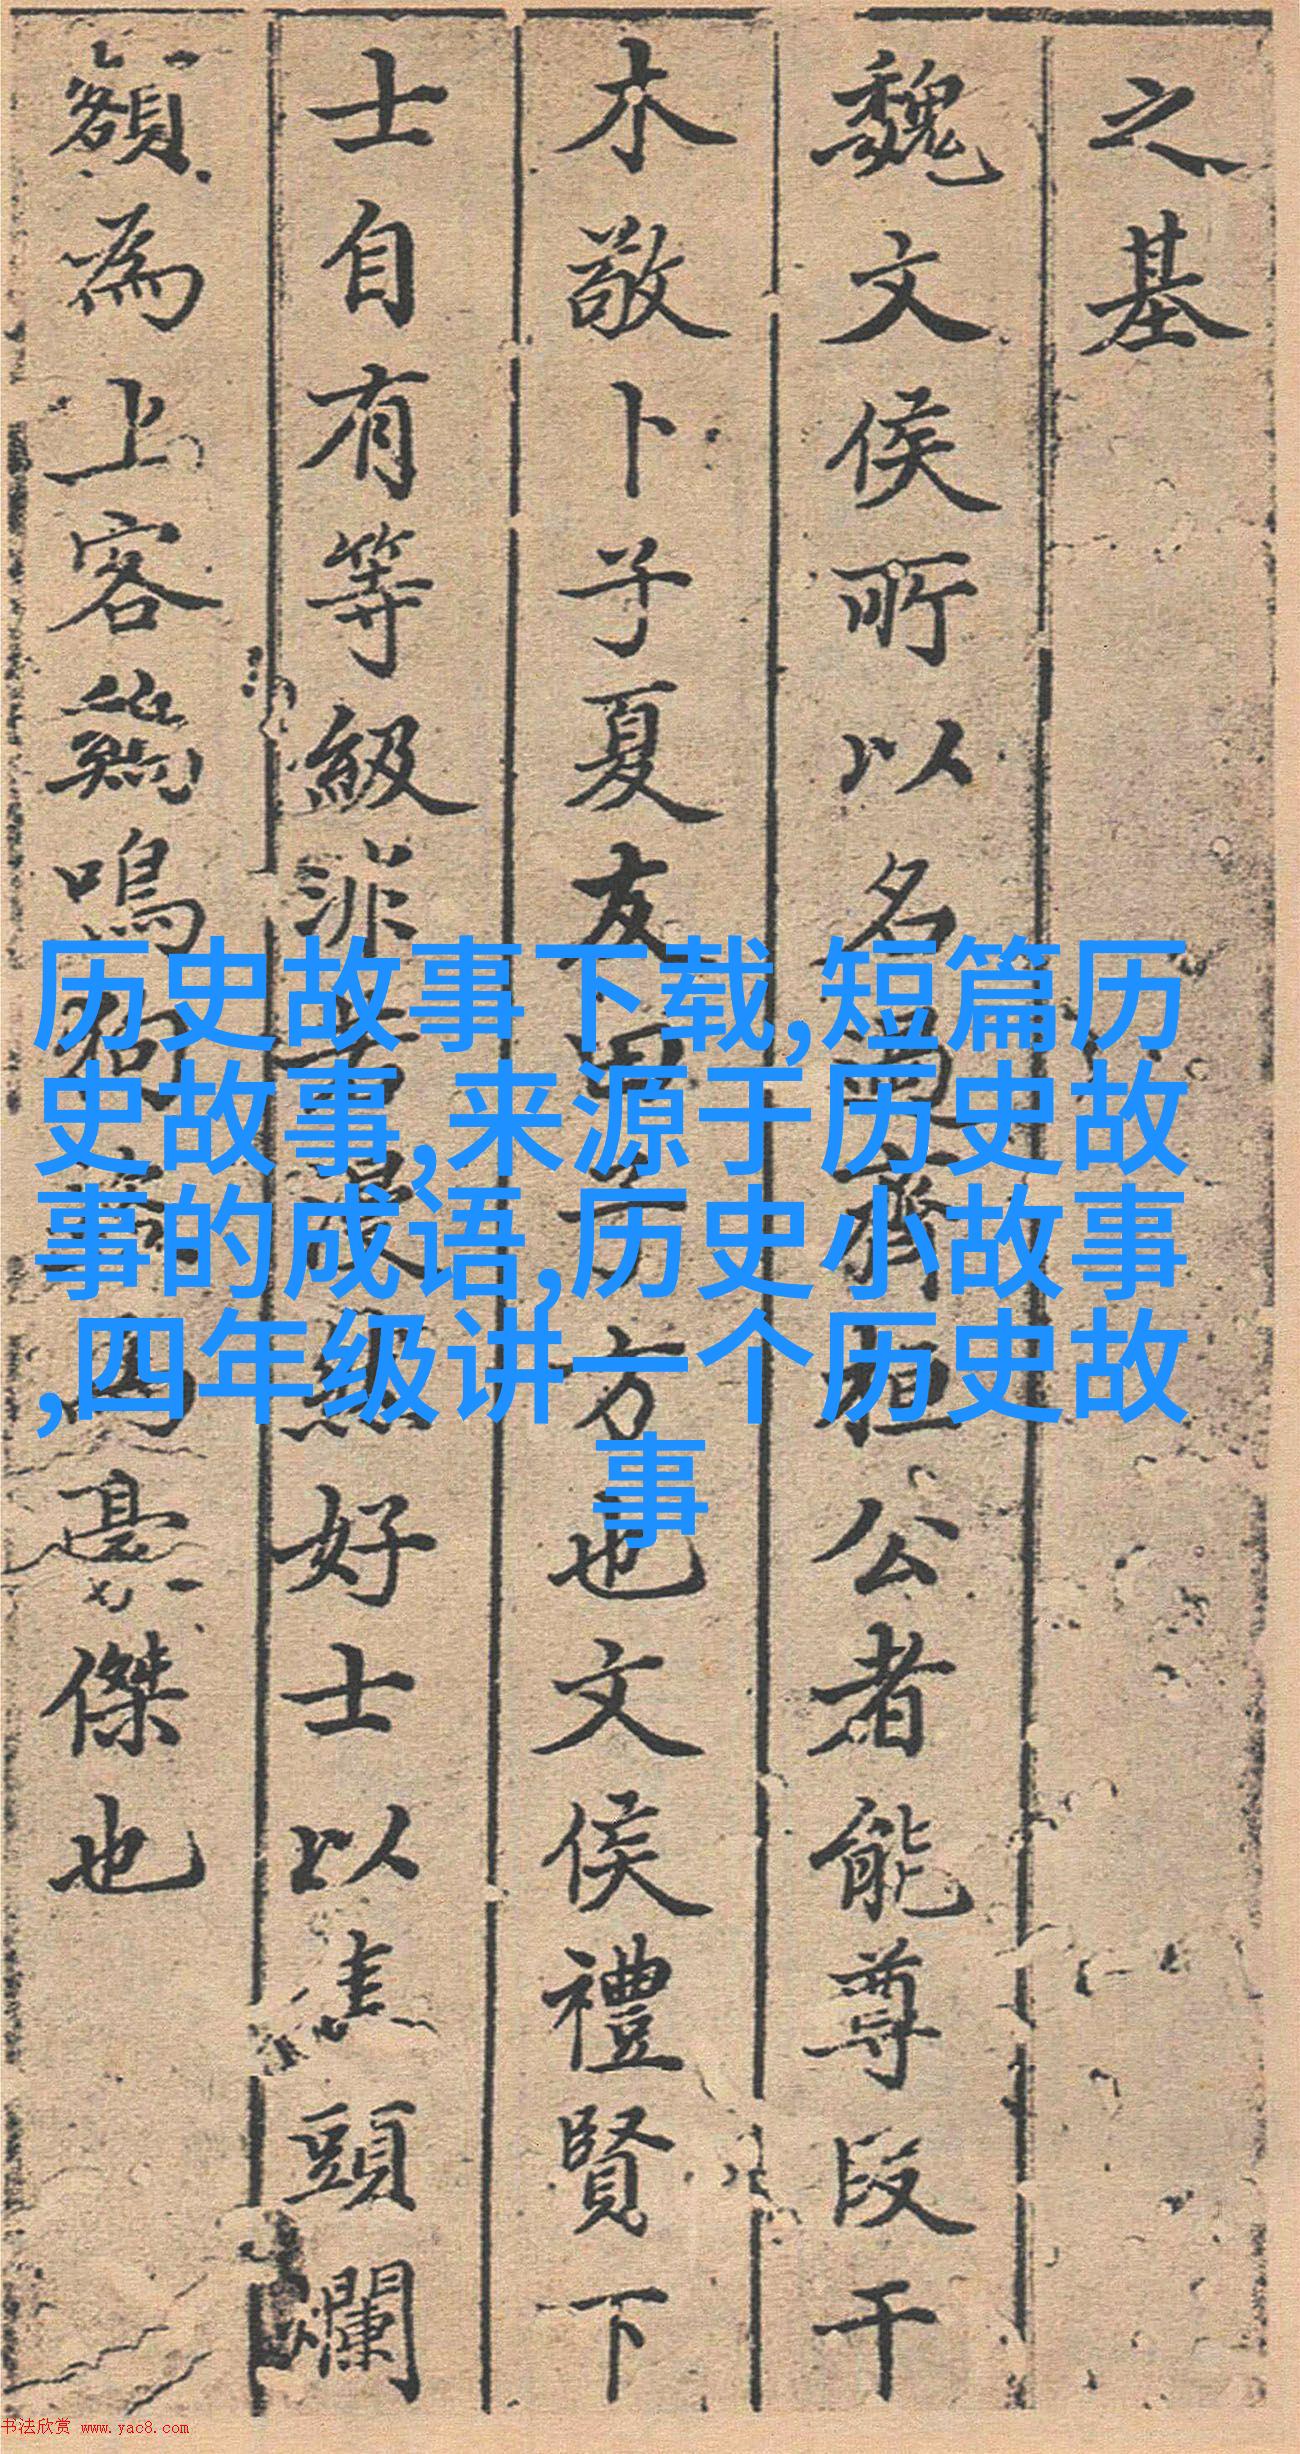 之基
魏文侯所以名過齊桓公者能尊段干
木敬卜子夏友田子方也文侯禮賢下
士自有等級非若漫然好士以焦頭爛
額為上客鷄鳴狗盜為豪傑也
历史故事下载,短篇历
史故事,来源于历史故
事的成语,历史小故事
,四年级讲一个历史故
事
书法欣赏 www.yac8.com